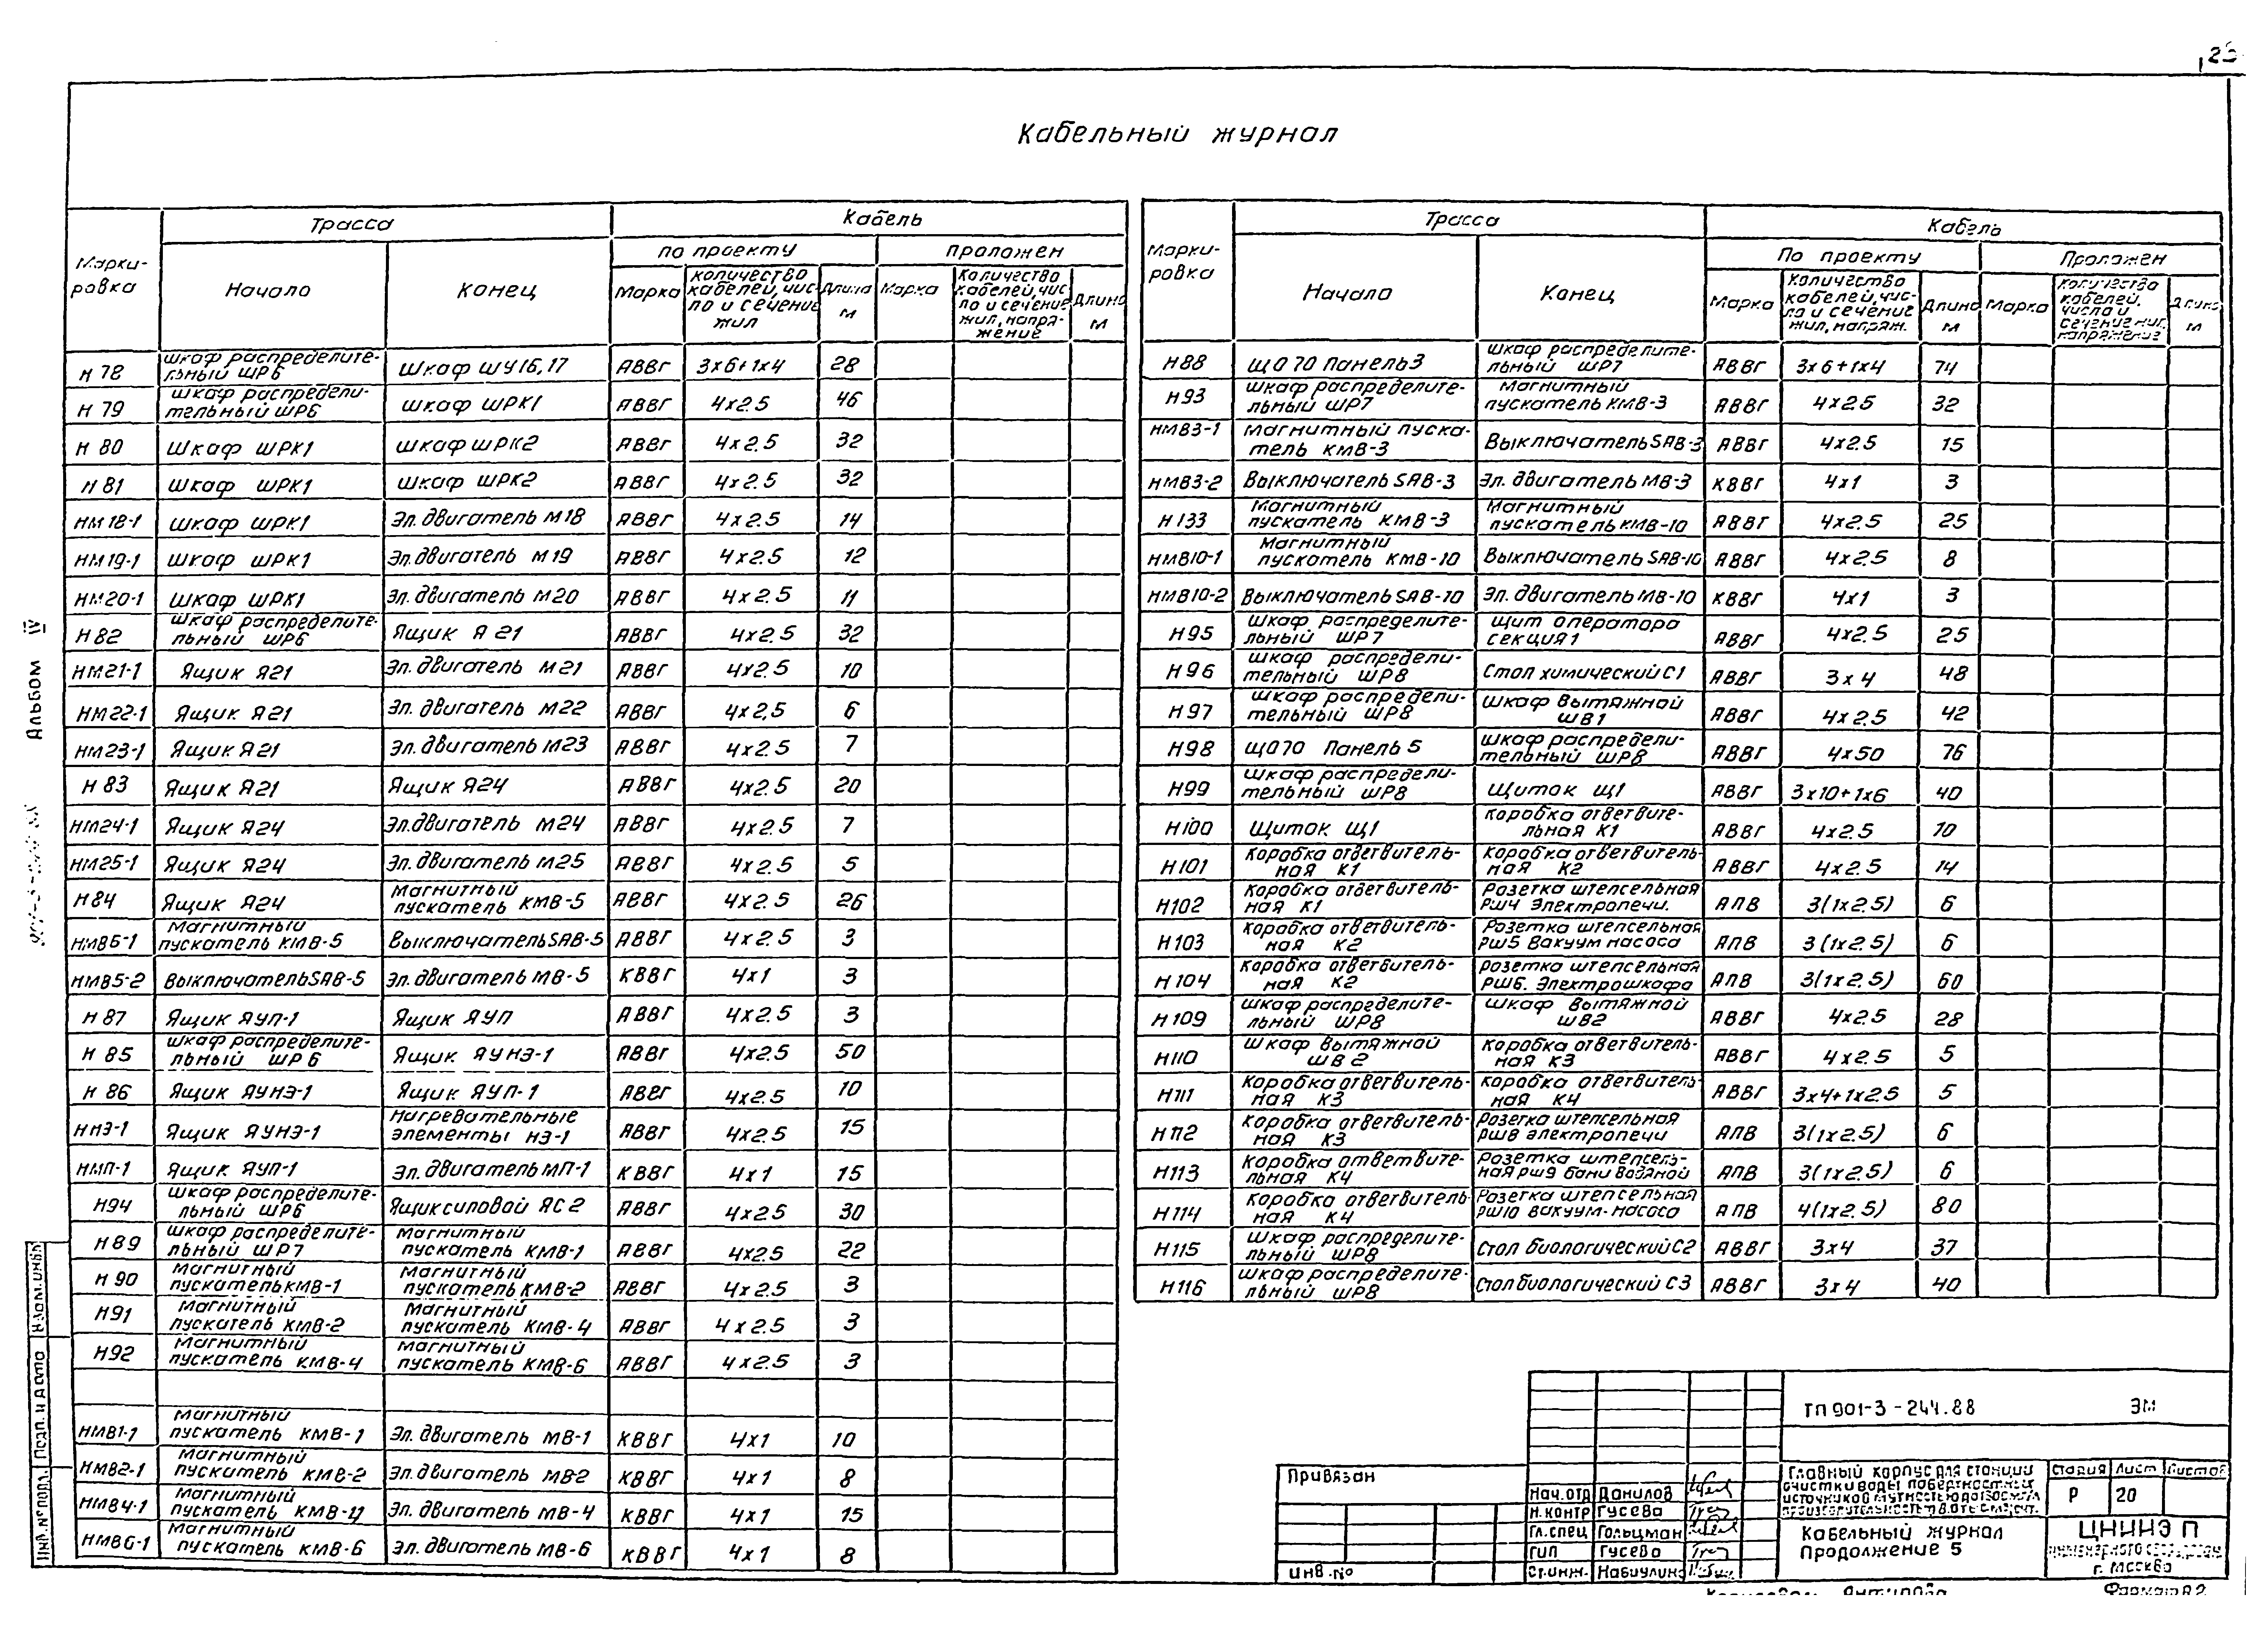 Кабельный журнал
Марки-
ровка
Трасса
Кабель
Начало
Конец
по проекту
проложен
Марка
количество
кабелей, чис-
ло и сечение
жил
Длина
м
Марка
Количество
кабелей, чис
ло и сечение
жил, напря-
жение
Длина
м
Н 78 шкаф распределите-
льный ШР6 Шкаф ШУ16,17 АВВГ 3х6+1х4 28
Н 79 шкаф распредели-
тельный ШР6 шкаф ШРК1 АВВГ 4х2.5 46
Н 80 Шкаф ШРК1 шкаф ШРК2 АВВГ 4х2.5 32
Н 81 шкаф ШРК1 шкаф ШРК2 АВВГ 4х2.5 32
НМ18-1 шкаф ШРК1 Эл. двигатель М18 АВВГ 4х2.5 14
НМ19-1 шкаф ШРК1 Эл. двигатель М19 АВВГ 4х2.5 12
НМ20-1 шкаф ШРК1 Эл. двигатель М20 АВВГ 4х2.5 11
Н 82 шкаф распределите-
льный ШР6 Ящик Я 21 АВВГ 4х2.5 32
НМ21-1 Ящик Я21 Эл. двигатель М21 АВВГ 4х2.5 10
НМ22-1 Ящик Я21 Эл. двигатель М22 АВВГ 4х2,5 6
НМ23-1 Ящик Я21 Эл. двигатель М23 АВВГ 4х2.5 7
Н 83 Ящик Я21 Ящик Я24 АВВГ 4х2.5 20
НМ24-1 Ящик Я24 Эл. двигатель М24 АВВГ 4х2.5 7
НМ25-1 Ящик Я24 Эл. двигатель М25 АВВГ 4х2.5 5
Н84 Ящик Я24 Магнитный
пускатель КМВ-5 АВВГ 4х2.5 26
НМВ5-1 Магнитный
пускатель КМВ-5 Выключатель SAB-5 АВВГ 4х2.5 3
НМВ5-2 Выключатель SAB-5 Эл. двигатель МВ-5 КВВГ 4х1 3
Н 87 Ящик ЯУП-1 Ящик ЯУП АВВГ 4х2.5 3
Н 85 шкаф распределите-
льный ШР6 Ящик ЯУНЭ-1 АВВГ 4х2.5 50
Н 86 Ящик ЯУНЭ-1 Ящик ЯУП-1 АВВГ 4х2.5 10
ННЭ-1 Ящик ЯУНЭ-1 Нагревательные
элементы НЭ-1 АВВГ 4х2.5 15
НМП-1 Ящик ЯУП-1 Эл. двигатель МП-1 КВВГ 4х1 15
Н94 шкаф распределите-
льный ШР6 Ящик силовой ЯС2 АВВГ 4х2.5 30
Н 89 шкаф распределите-
льный ШР7 Магнитный
пускатель КМВ-1 АВВГ 4х2.5 22
Н 90 Магнитный
пускатель КМВ-1 Магнитный
пускатель КМВ-2 АВВГ 4х2.5 3
Н91 Магнитный
пускатель КМВ-2 Магнитный
пускатель КМВ-4 АВВГ 4х2.5 3
Н92 Магнитный
пускатель КМВ-4 Магнитный
пускатель КМВ-6 АВВГ 4х2.5 3
НМВ1-1 Магнитный
пускатель КМВ-1 Эл. двигатель МВ-1 КВВГ 4х1 10
НМВ2-1 Магнитный
пускатель КМВ-2 Эл. двигатель МВ-2 КВВГ 4х1 8
НМВ4-1 Магнитный
пускатель КМВ-4 Эл. двигатель МВ-4 КВВГ 4х1 15
НМВ6-1 Магнитный
пускатель КМВ-6 эл. двигатель МВ-6 КВВГ 4х1 8
Марки-
ровка
Трасса
Кабель
Начало
Конец
По проекту
Проложен
Марка
Количество
кабелей, чис-
ло и сечение
жил, напряж.
Длина
м
Марка
Количества
кабелей,
числа и
сечение жил,
напряжение
Длина
м
Н88 ЩО70 Панель3 шкаф распределите-
льный ШР7 АВВГ 3х6+1х4 74
Н93 шкаф распределите-
льный ШР7 Магнитный
пускатель КМВ-3 АВВГ 4х2.5 32
НМВ3-1 Магнитный пуска-
тель КМВ-3 Выключатель SAB-3 АВВГ 4х2.5 15
НМВ3-2 Выключатель SAB-3 Эл. двигатель МВ-3 КВВГ 4х1 3
Н133 Магнитный
пускатель КМВ-3 Магнитный
пускатель КМВ-10 АВВГ 4х2.5 25
НМВ10-1 Магнитный
пускатель КМВ-10 Выключатель SAB-10 АВВГ 4х2.5 8
НМВ10-2 Выключатель SAB-10 Эл. двигатель МВ-10 КВВГ 4х1 3
Н95 шкаф распределите-
льный ШР7 щит оператора
секция1 АВВГ 4х2.5 25
Н96 шкаф распредели-
тельный ШР8 Стол химический С1 АВВГ 3х4 48
Н97 шкаф распредели-
тельный ШР8 шкаф вытяжной
ШВ1 АВВГ 4х2.5 42
Н98 ЩО70 Панель 5 шкаф распредели-
тельный ШР8 АВВГ 4х50 76
Н99 шкаф распредели-
тельный ШР8 Щиток Щ1 АВВГ 3х10+1х6 40
Н100 Щиток Щ1 Коробка ответвите-
льная К1 АВВГ 4х2.5 10
Н101 Коробка ответвитель-
ная К1 Коробка ответвитель-
ная К2 АВВГ 4х2.5 14
Н102 Коробка ответвитель-
ная К1 Розетка штепсельная
РШ4 Электропечи. АПВ 3(1х2.5) 6
Н103 Коробка ответвитель-
ная К2 Розетка штепсельная
РШ5 вакуум насоса АПВ 3(1х2.5) 6
Н104 Коробка ответвитель-
ная К2 розетка штепсельная
РШ6. Электрошкафа АПВ 3(1х2.5) 60
Н109 шкаф распределите-
льный ШР8 шкаф вытяжной
ШВ2 АВВГ 4х2.5 28
Н110 шкаф вытяжной
ШВ2 Коробка ответвитель-
ная К3 АВВГ 4х2.5 5
Н111 Коробка ответвитель-
ная К3 коробка ответвитель-
ная К4 АВВГ 3х4+1х2.5 5
Н112 Коробка ответвитель-
ная К3 Розетка штепсельная
РШ8 электропечи АПВ 3(1х2.5) 6
Н113 Коробка ответвите-
льная К4 Розетка штепсель-
ная РШ9 бани водяной АПВ 3(1х2.5) 6
Н114 Коробка ответвитель
ная К4 Розетка штепсельная
РШ10 вакуум-насоса АПВ 4(1х2.5) 80
Н115 шкаф распределите-
льный ШР8 Стол биологический С2 АВВГ 3х4 37
Н116 шкаф распределите-
льный ШР8 Стол биологический С3 АВВГ 3х4 40
Альбом IV
Взам. инв.
Подп. и дата
Инв. № подл.
Привязан
Инв. №
Нач. отд Данилов
Н. контр Гусева
Гл. спец Гольцман
ГИП Гусева
Ст. инж. Набиулина
ТП 901-3-244.88 ЭМ
Главный корпус для станции
очистки воды поверхностных
источников мутностью до
Стадия Лист Листов
Р 20
Кабельный журнал
Продолжение 5
ЦНИИЭП
инженерного
г. Москва
Копировал Антипова
Формат А2